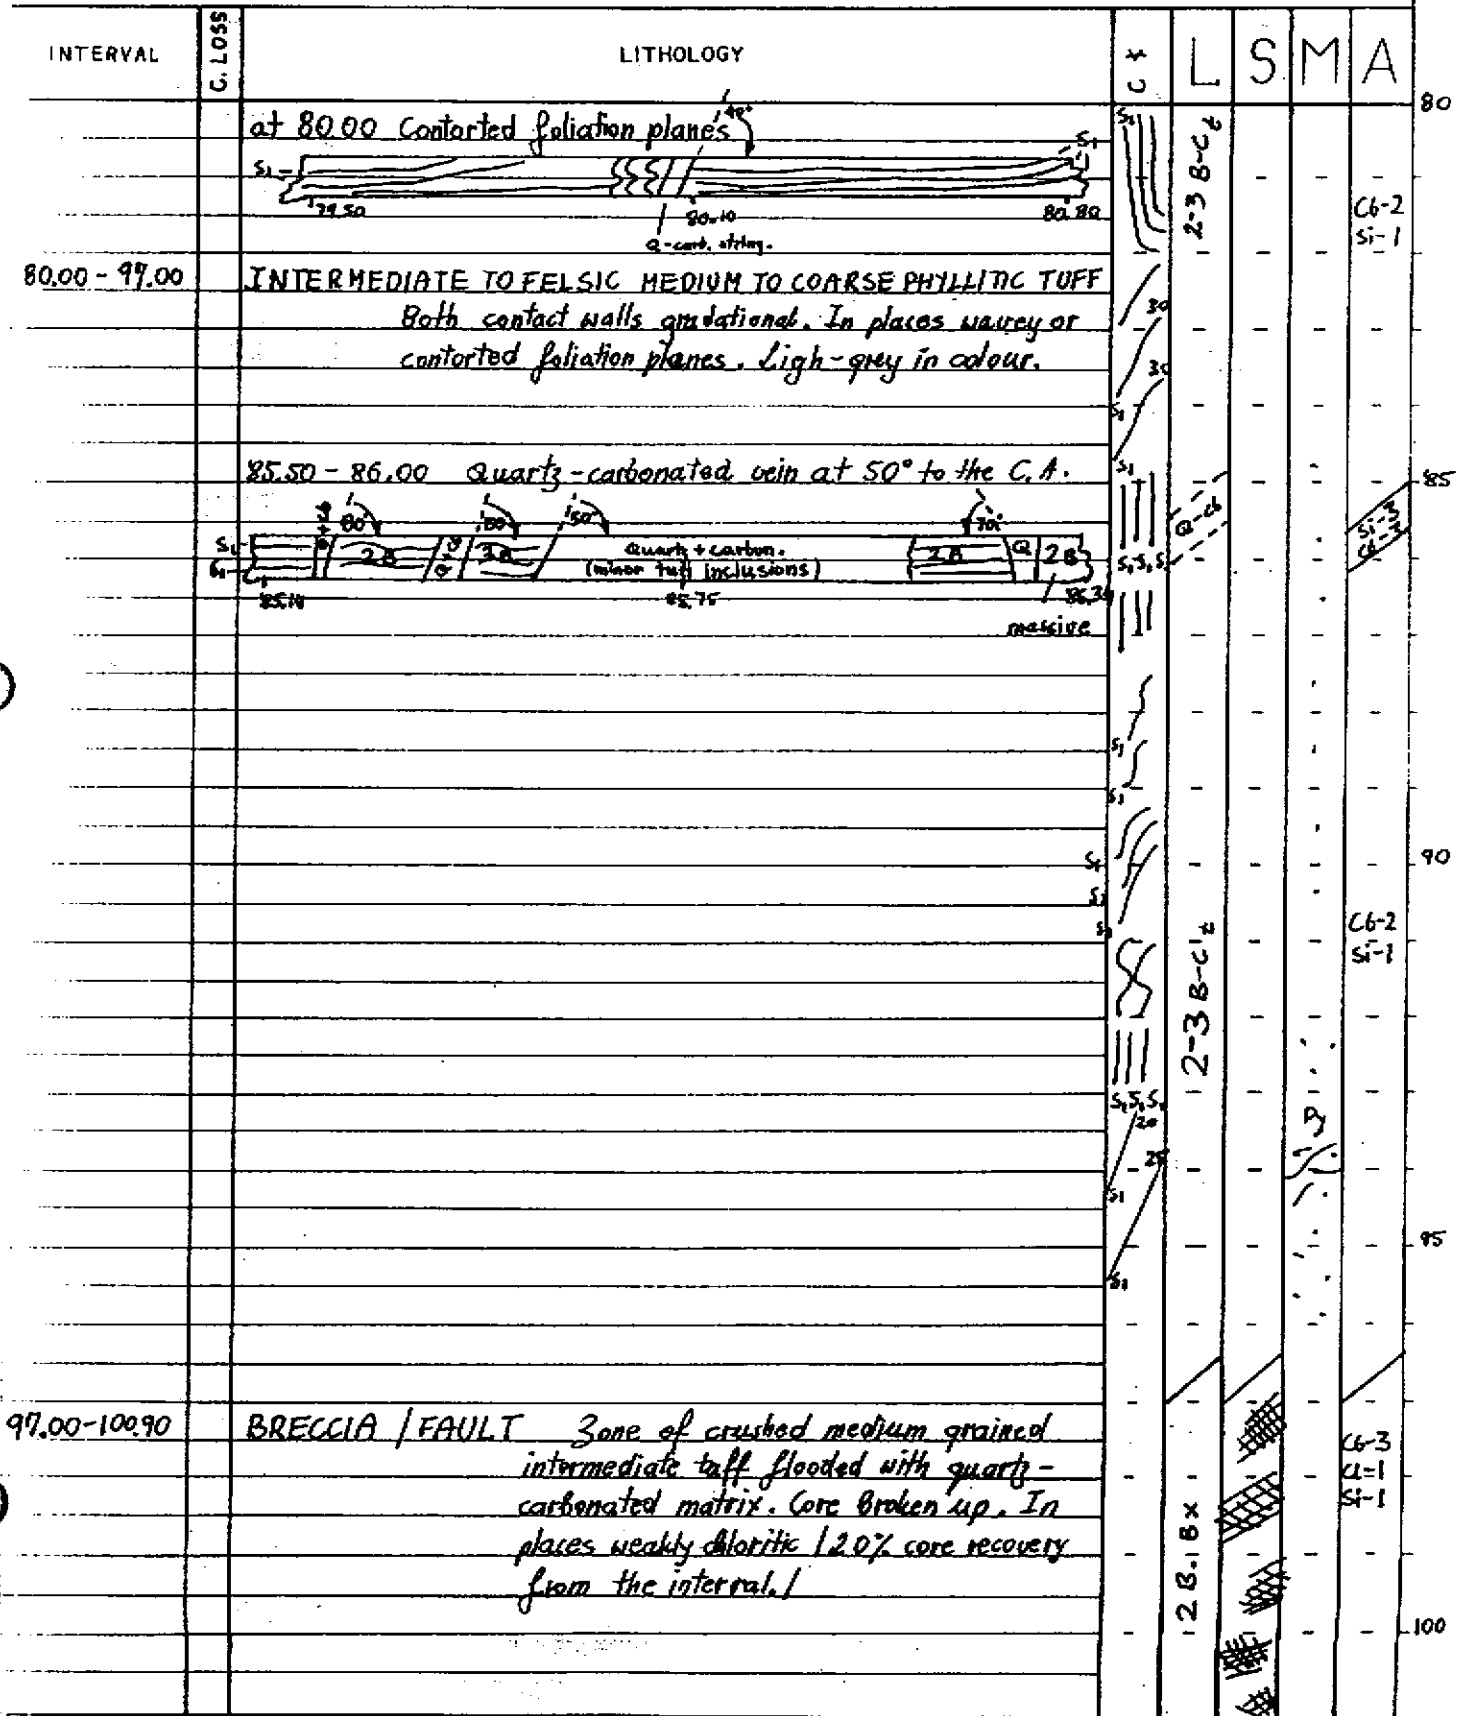 INTERVAL C. LOSS LITHOLOGY L S M A
80
at 80.00 Contorted foliation planes
40°
S1
S1
79.50 80.10 80.80
Q-carb. string.
2-3 B-C t
Cb-2
Si-1
80.00 - 97.00 INTERMEDIATE TO FELSIC MEDIUM TO COARSE PHYLLITIC TUFF
Both contact walls gradational. In places wavey or
30
contorted foliation planes. Ligh-grey in colour.
30
S1
85.50 - 86.00 Quartz-carbonated vein at 50° to the C.A.
S1
85
80° 50° 70°
Q-cb
Si-3
S1 2B 2B Quartz + carbon. 2B Q 2B
(minor tuff inclusions)
S1 S1 S1
85.10 85.75
massive
S1
S1
90
S1
S1
S1
Cb-2
Si-1
2-3 B-C t
S1 S1 S1
20
25
S1
95
S1
97.00-100.90 BRECCIA / FAULT Zone of crushed medium grained
intermediate taff flooded with quartz-
carbonated matrix. Core Broken up. In
places weakly chloritic / 20% core recovery
from the interval. /
Cb-3
Cl=1
Si-1
2 B.1 Bx
100